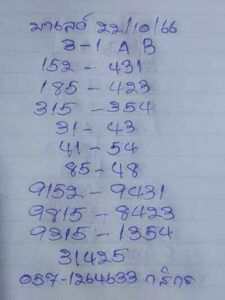 มาเลย์ 22/10/66
3-1 A B
152 - 431
185 - 423
315 - 354
31 - 43
41 - 54
85 - 48
9152 - 9431
9815 - 8423
9315 - 1354
31425
057-1264633 กสิกร